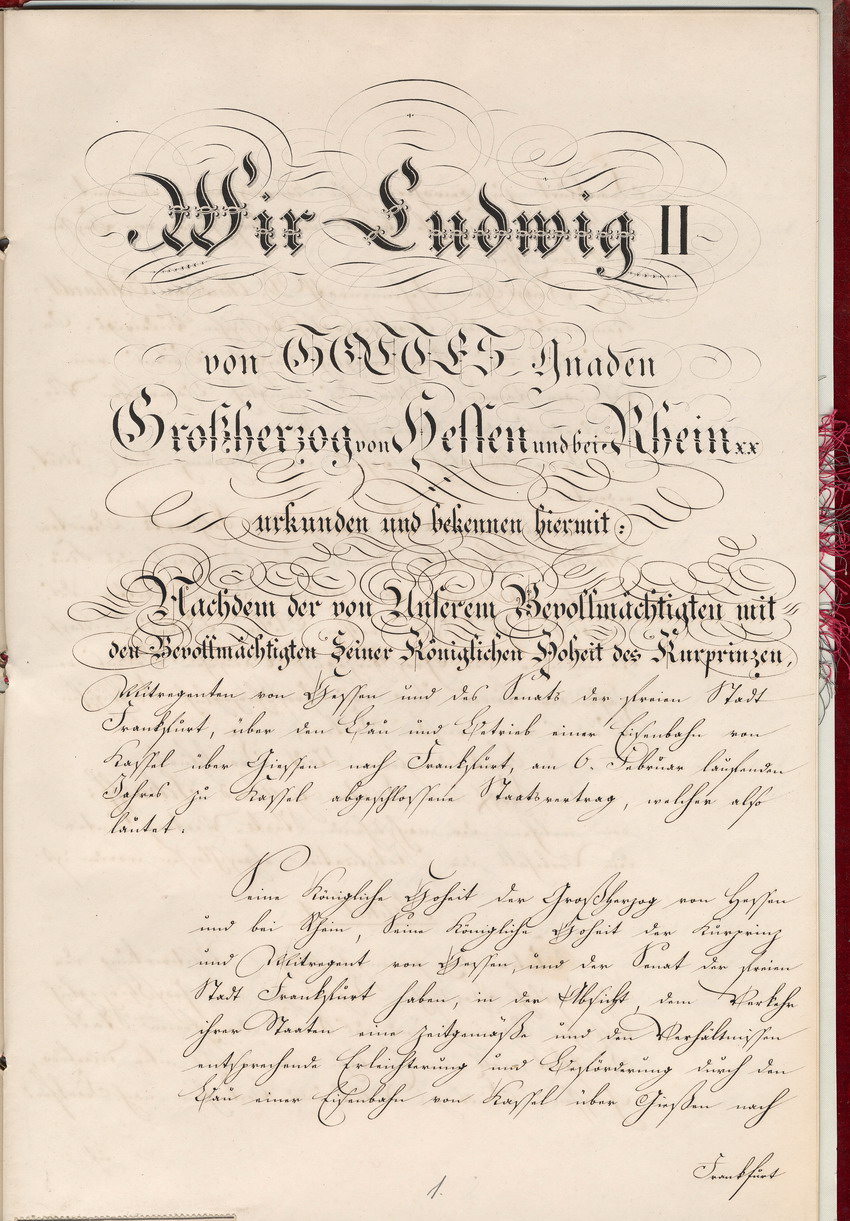 Wir Ludwig II
von GOTTES Gnaden
Großherzog von Hessen und bei Rhein xx
urkunden und bekennen hiermit:
Nachdem der von Unserem Bevollmächtigten mit
den Bevollmächtigten Seiner Königlichen Hoheit des Kurprinzen,
Mitregenten von Hessen und des Senats der freien Stadt
Frankfurt, über den Bau und Betrieb einer Eisenbahn von
Kassel über Giessen nach Frankfurt, am 6. Februar laufenden
Jahres zu Kassel abgeschlossene Staatsvertrag, welcher also
lautet:
Seine Königliche Hoheit der Großherzog von Hessen
und bei Rhein, Seine Königliche Hoheit der Kurprinz
und Mitregent von Hessen, und der Senat der freien
Stadt Frankfurt haben, in der Absicht, dem Verkehr
ihrer Staaten eine zeitgemäße und den Verhältnissen
entsprechende Erleichterung und Beförderung durch den
Bau einer Eisenbahn von Kassel über Gießen nach
Frankfurt
1.